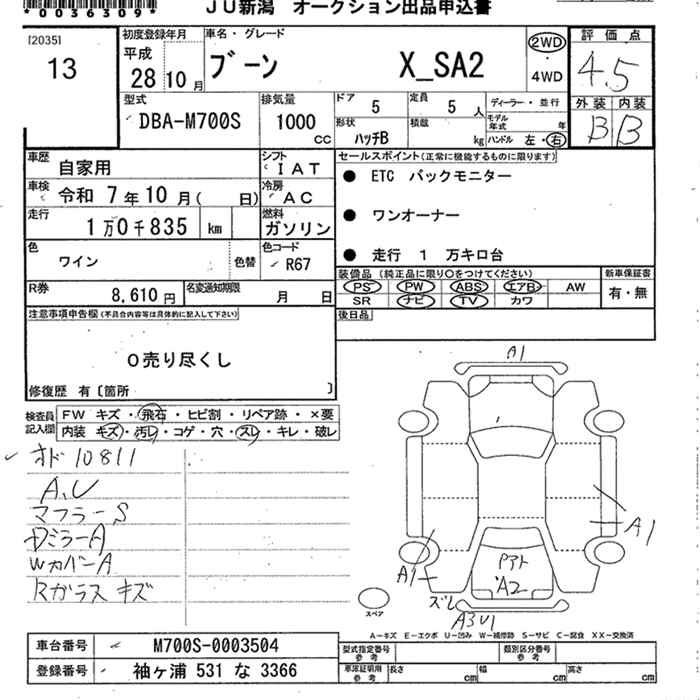 *0036309*
JU新潟 オークション出品申込書
I20351
13
初度登録年月
平成
28 10 月
車名・グレード
ブーン X_SA2
2WD
4WD
評価点
4.5
外装 内装
B B
型式
DBA-M700S
排気量
1000 cc
ドア 5
定員 5 人
ディーラー・並行
形状 ハッチB
積載 kg
モデル年式 年
ハンドル 左・右
車歴 自家用
シフト I A T
車検 令和 7 年 10 月( 日)
冷房 AC
走行 1 万 0 千 835 km
燃料 ガソリン
色 ワイン 色替
色コード R67
R券 8,610 円
名変通知期限 月 日
セールスポイント(正常に機能するものに限ります)
● ETC バックモニター
● ワンオーナー
● 走行 1 万キロ台
装備品(純正品に限り○をつけてください)
PS PW ABS エアB AW
SR ナビ TV カワ
新車保証書
有・無
後日品
注意事項申告欄(不具合内容等は具体的に記入して下さい)
0売り尽くし
修復歴 有〔箇所 〕
検査員記入欄
FW キズ・飛石・ヒビ割・リペア跡・×要
内装 キズ・汚レ・コゲ・穴・スレ・キレ・破レ
オド 10811
A,U
マフラーS
DミラーA
WカバーA
Rガラス キズ
A1
A1
A1
Pアト
A2
ズレ
A3U1
スペア
A-キズ E-エクボ U-凹み W-補修跡 S-サビ C-腐食 XX-交換済
車台番号 M700S-0003504
登録番号 袖ヶ浦 531 な 3366
型式指定番号 参考
類別区分番号 参考
車庫証明用 参考
長さ cm
幅 cm
高さ cm